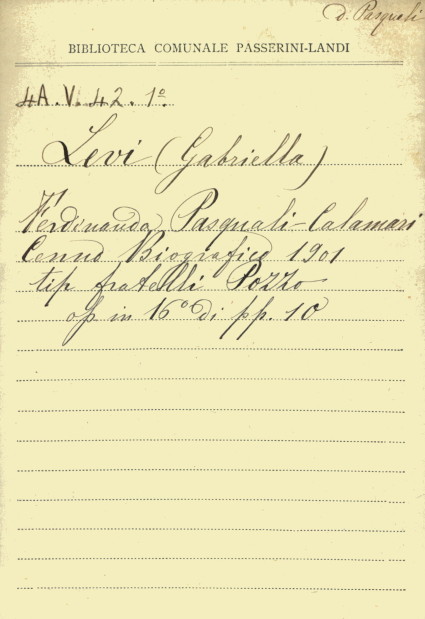 d. Pasquali
BIBLIOTECA COMUNALE PASSERINI-LANDI
4A. V. 42. 1º.
Levi (Gabriella)
Ferdinanda Pasquali-Calamari
Cenno Biografico 1901
tip fratelli Pozzo
op in 16º di pp. 10